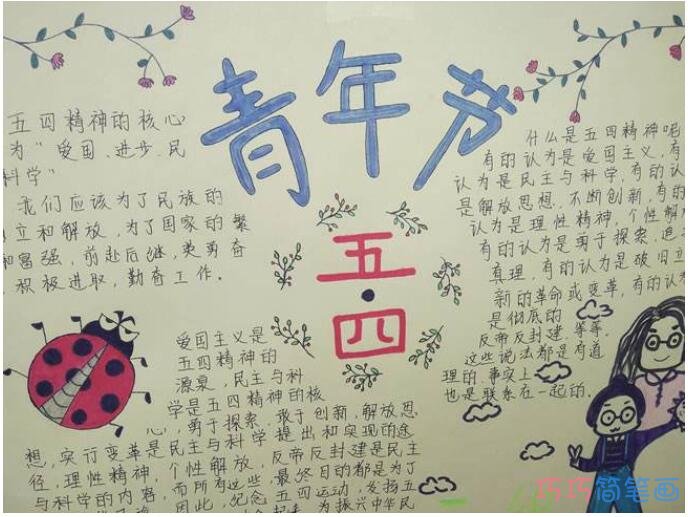 青年节
五·四
五四精神的核心
为“爱国、进步、民
科学”
我们应该为了民族的
立和解放,为了国家的繁
和富强,前赴后继,英勇奋
积极进取,勤奋工作.
爱国主义是
五四精神的
源泉,民主与科
学是五四精神的核
心,勇于探索、敢于创新、解放思
想,实行变革是民主与科学提出和实现的途
径,理性精神,个性解放,反帝反封建是民主
与科学的内容,而所有这些,最终目的都是为了
因此,纪念五四运动,发扬五
为振兴中华民
什么是五四精神呢
有的认为是爱国主义,有
认为是民主与科学,有的认
是解放思想、不断创新,有的
认为是理性精神,个性解放
有的认为是勇于探索、追
真理,有的认为是破旧立
新的革命或变革,有的认为
是彻底的
反帝反封建,等等。
这些说法都是有道
理的.事实上
也是联系在一起的.
巧巧简笔画